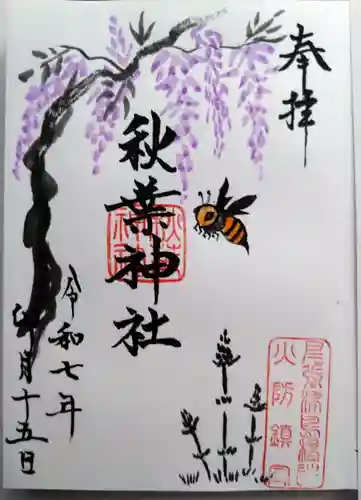 奉拝
秋葉神社
令和七年
卯月十五日
火防鎮